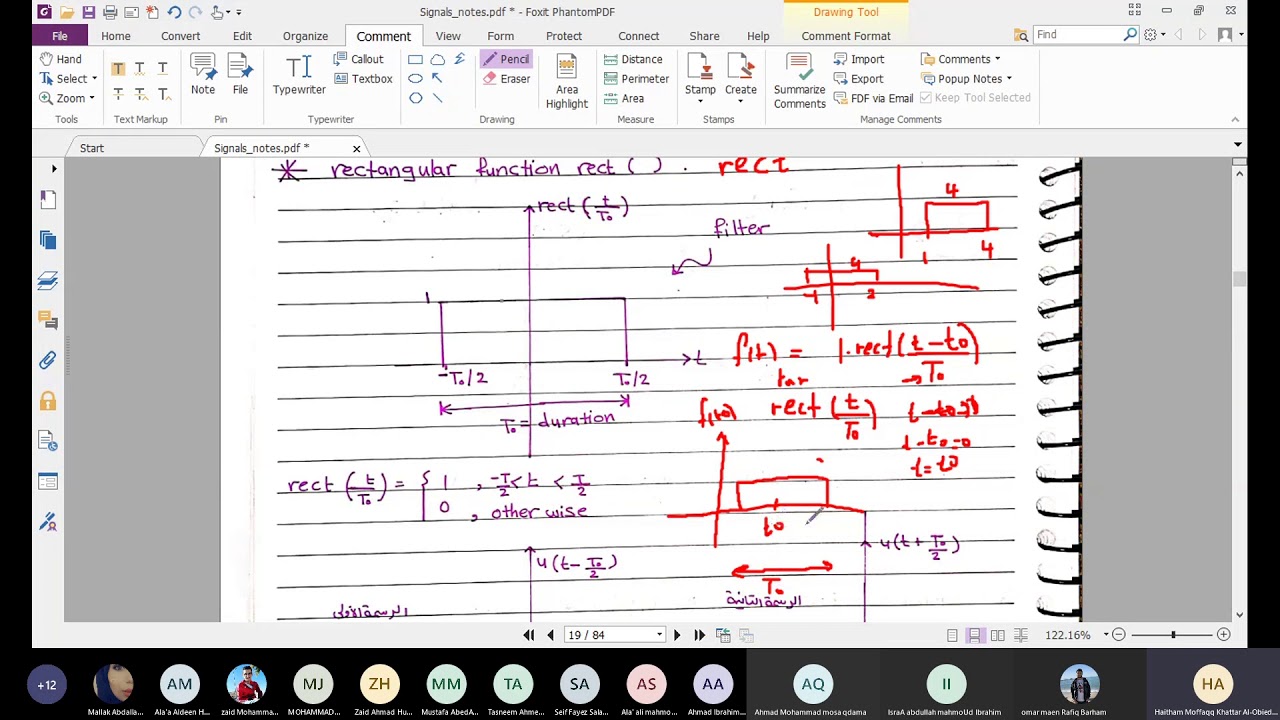 Signals_notes.pdf * - Foxit PhantomPDF
Drawing Tool
File Home Convert Edit Organize Comment View Form Protect Connect Share Help Comment Format
Find
Hand
Select
Zoom
Tools
Text Markup
Note
File
Pin
Typewriter
Callout
Textbox
Typewriter
Pencil
Eraser
Area Highlight
Drawing
Distance
Perimeter
Area
Measure
Stamp
Create
Stamps
Summarize Comments
Import
Export
FDF via Email
Comments
Popup Notes
Keep Tool Selected
Manage Comments
Start
Signals_notes.pdf *
* rectangular function rect ( ) . rect
rect (t/T₀)
filter
4
1 4
4
-1 2
1
-T₀/2 T₀/2
t
T₀ = duration
f(t) = 1.rect(t-t0/T₀)
rect (t/T₀)
t-t0=0
t=t0
t0
T₀
rect (t/T₀) = { 1 , -T/2 < t < T/2
0 , otherwise
u(t - T₀/2)
u(t + T₀/2)
الرسمة الأولى
الرسمة الثانية
19 / 84
122.16%
+12
Mallak Abdalla...
AM
Ala'a Aldeen H...
zaid Mohamma...
MJ
MOHAMMAD...
ZH
Zaid Ahmad Hu...
MM
Mustafa AbedA...
TA
Tasneem Ahme...
SA
Seif Fayez Sala...
AS
Ala' ali mahmo...
AA
Ahmad Ibrahim...
AQ
Ahmad Mohammad mosa qdama
II
IsraA abdullah mahmoUd Ibrahim
omar maen Rafiq Barham
HA
Haitham Moffaqq Khattar Al-Obied...